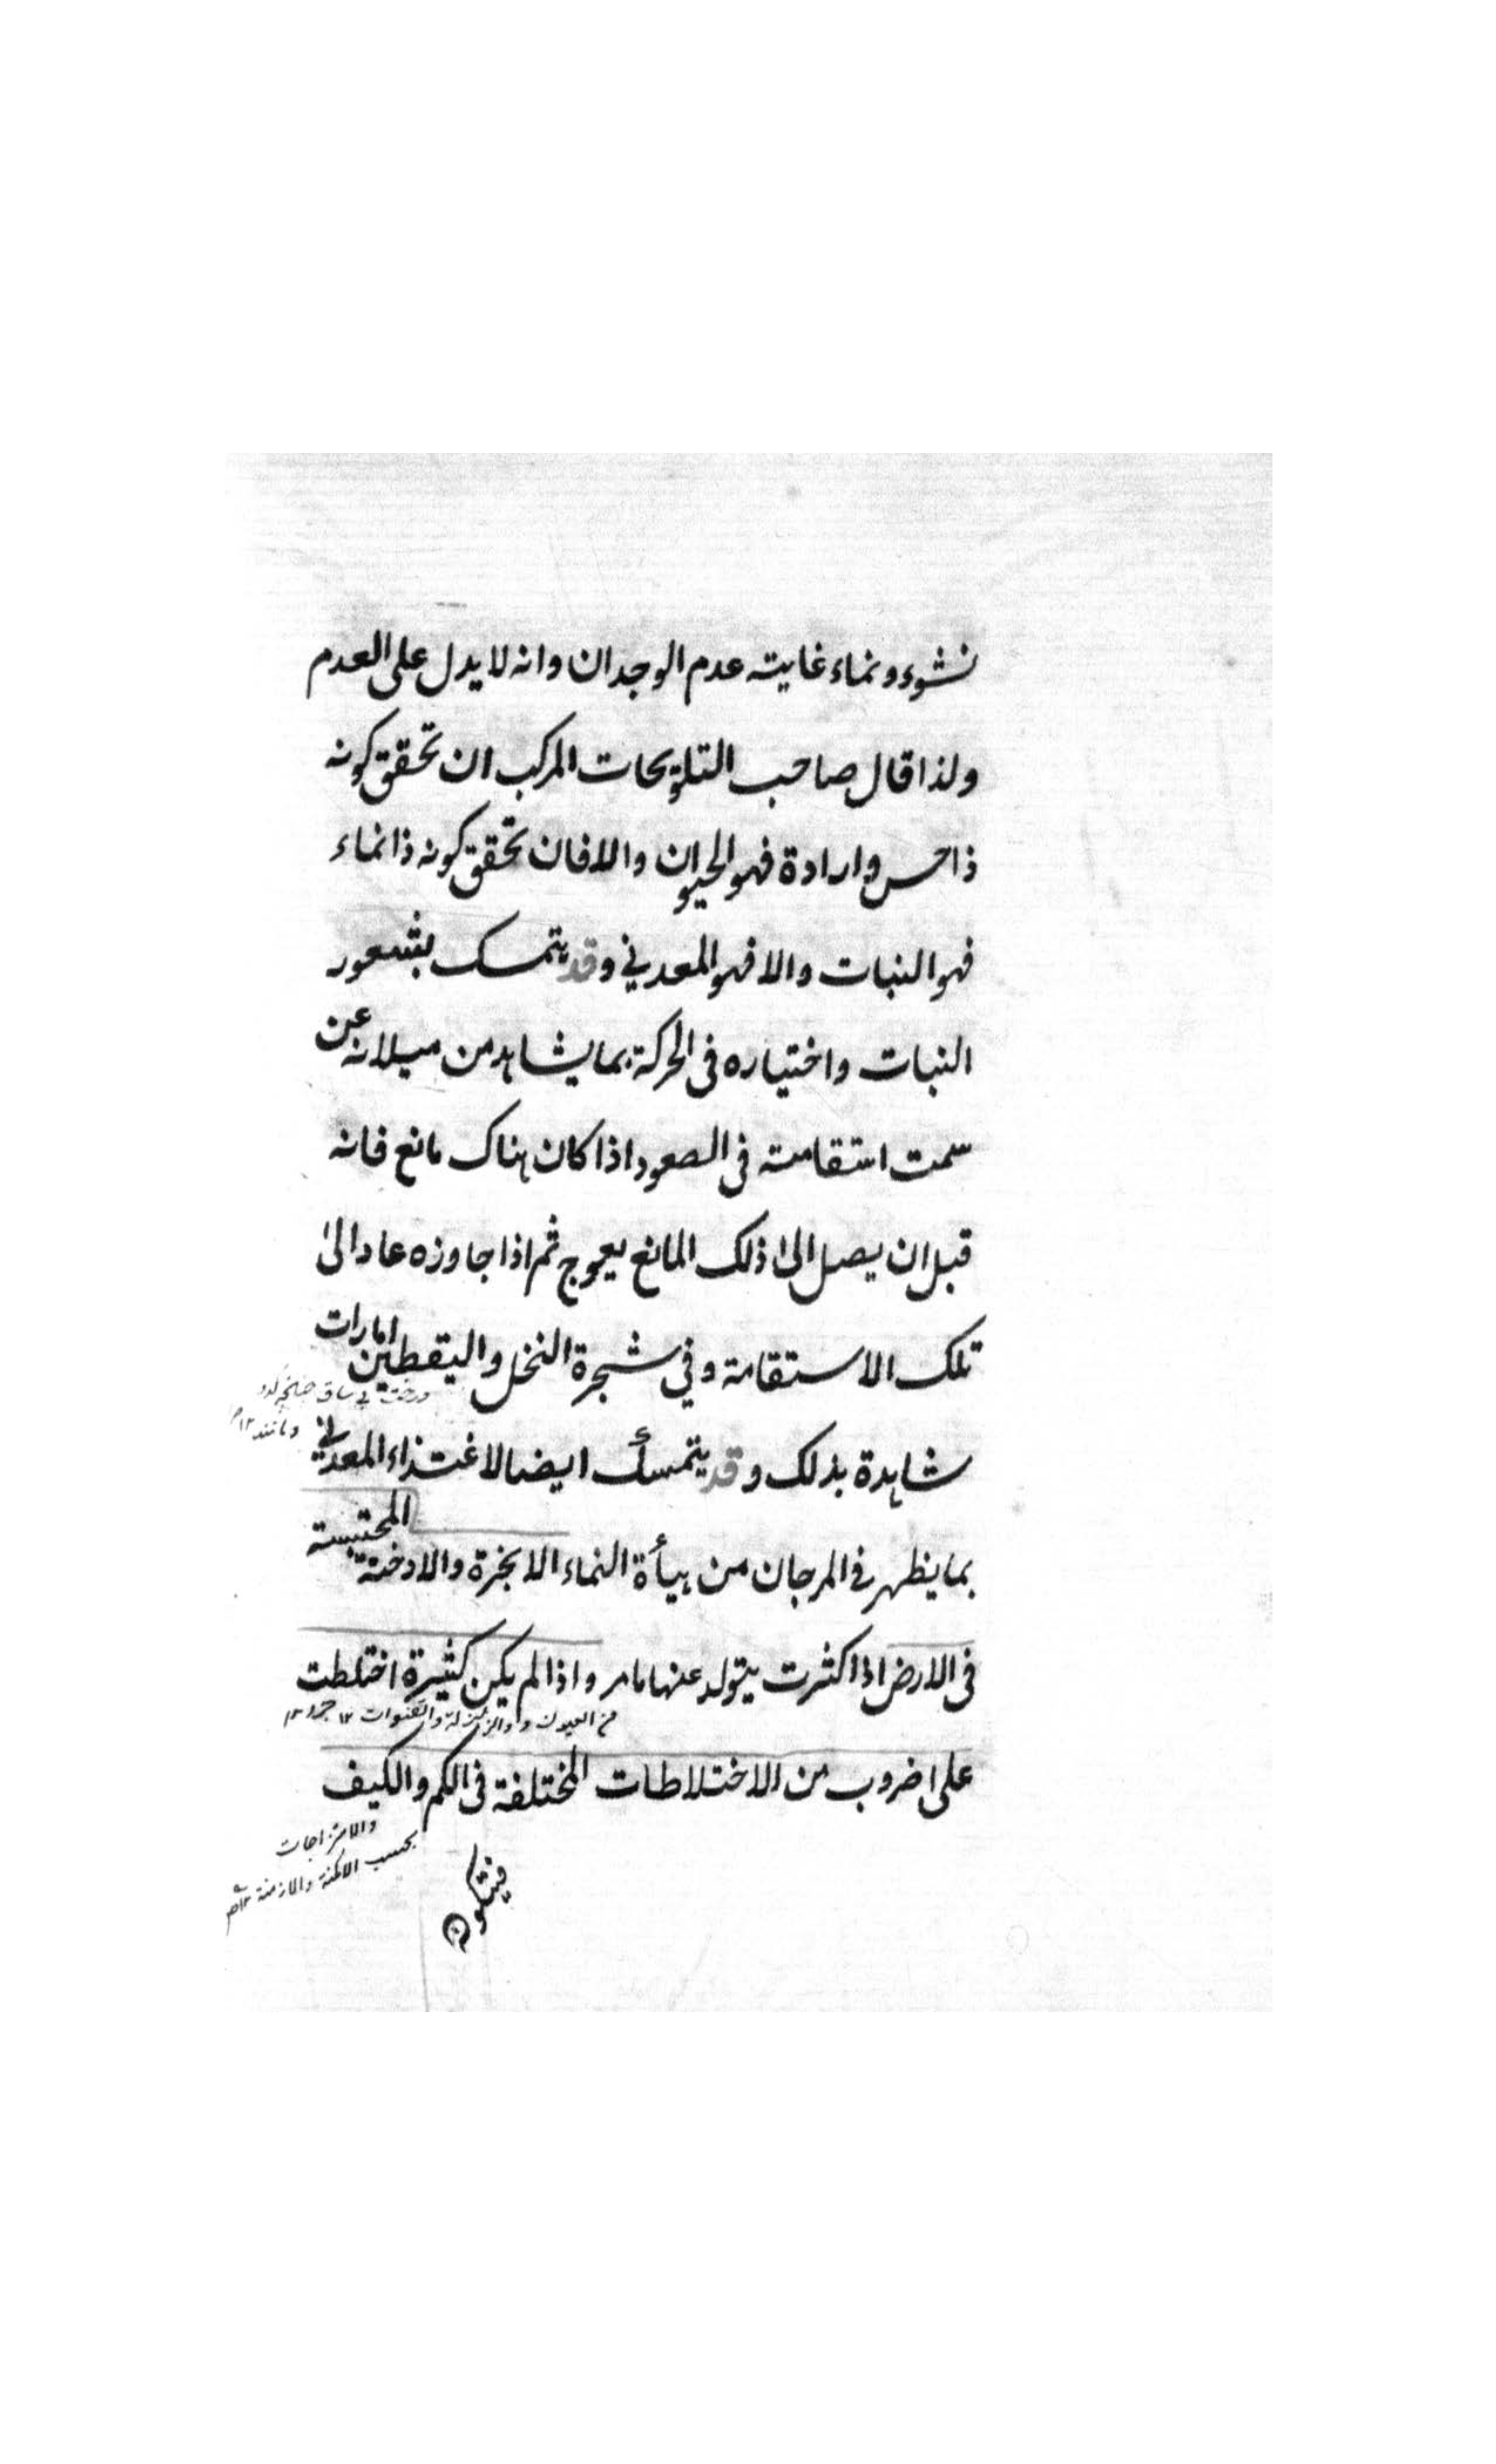 نشوء ونماء غايته عدم الوجدان وانه لا يدل على العدم
ولذا قال صاحب التلويحات المركب ان تحقق كونه
ذا حس وارادة فهو الحيوان والا فان تحقق كونه ذا نماء
فهو النبات والا فهو المعدني وقد يتمسك بشعور
النبات واختياره فى الحركة بما يشاهد من ميلانه عن
سمت استقامته فى الصعود اذا كان هناك مانع فانه
قبل ان يصل الى ذلك المانع يعوج ثم اذا جاوزه عاد الى
تلك الاستقامة وفي شجرة النخل واليقطين امارات
درخت بے ساق
ومانند ١٢
شاهدة بذلك وقد يتمسك ايضا لاغتذاء المعدني
بما يظهر فى المرجان من هيأة النماء الابخرة والادخنة المحتبسة
فى الارض اذا كثرت يتولد عنها ما مر واذا لم يكن كثيرة اختلطت
من العيون والزلزلة والقنوات ١٢
على ضروب من الاختلاطات المختلفة فى الكم والكيف
والامتزاجات
بحسب الامكنة والازمنة ١٢
فيتكون